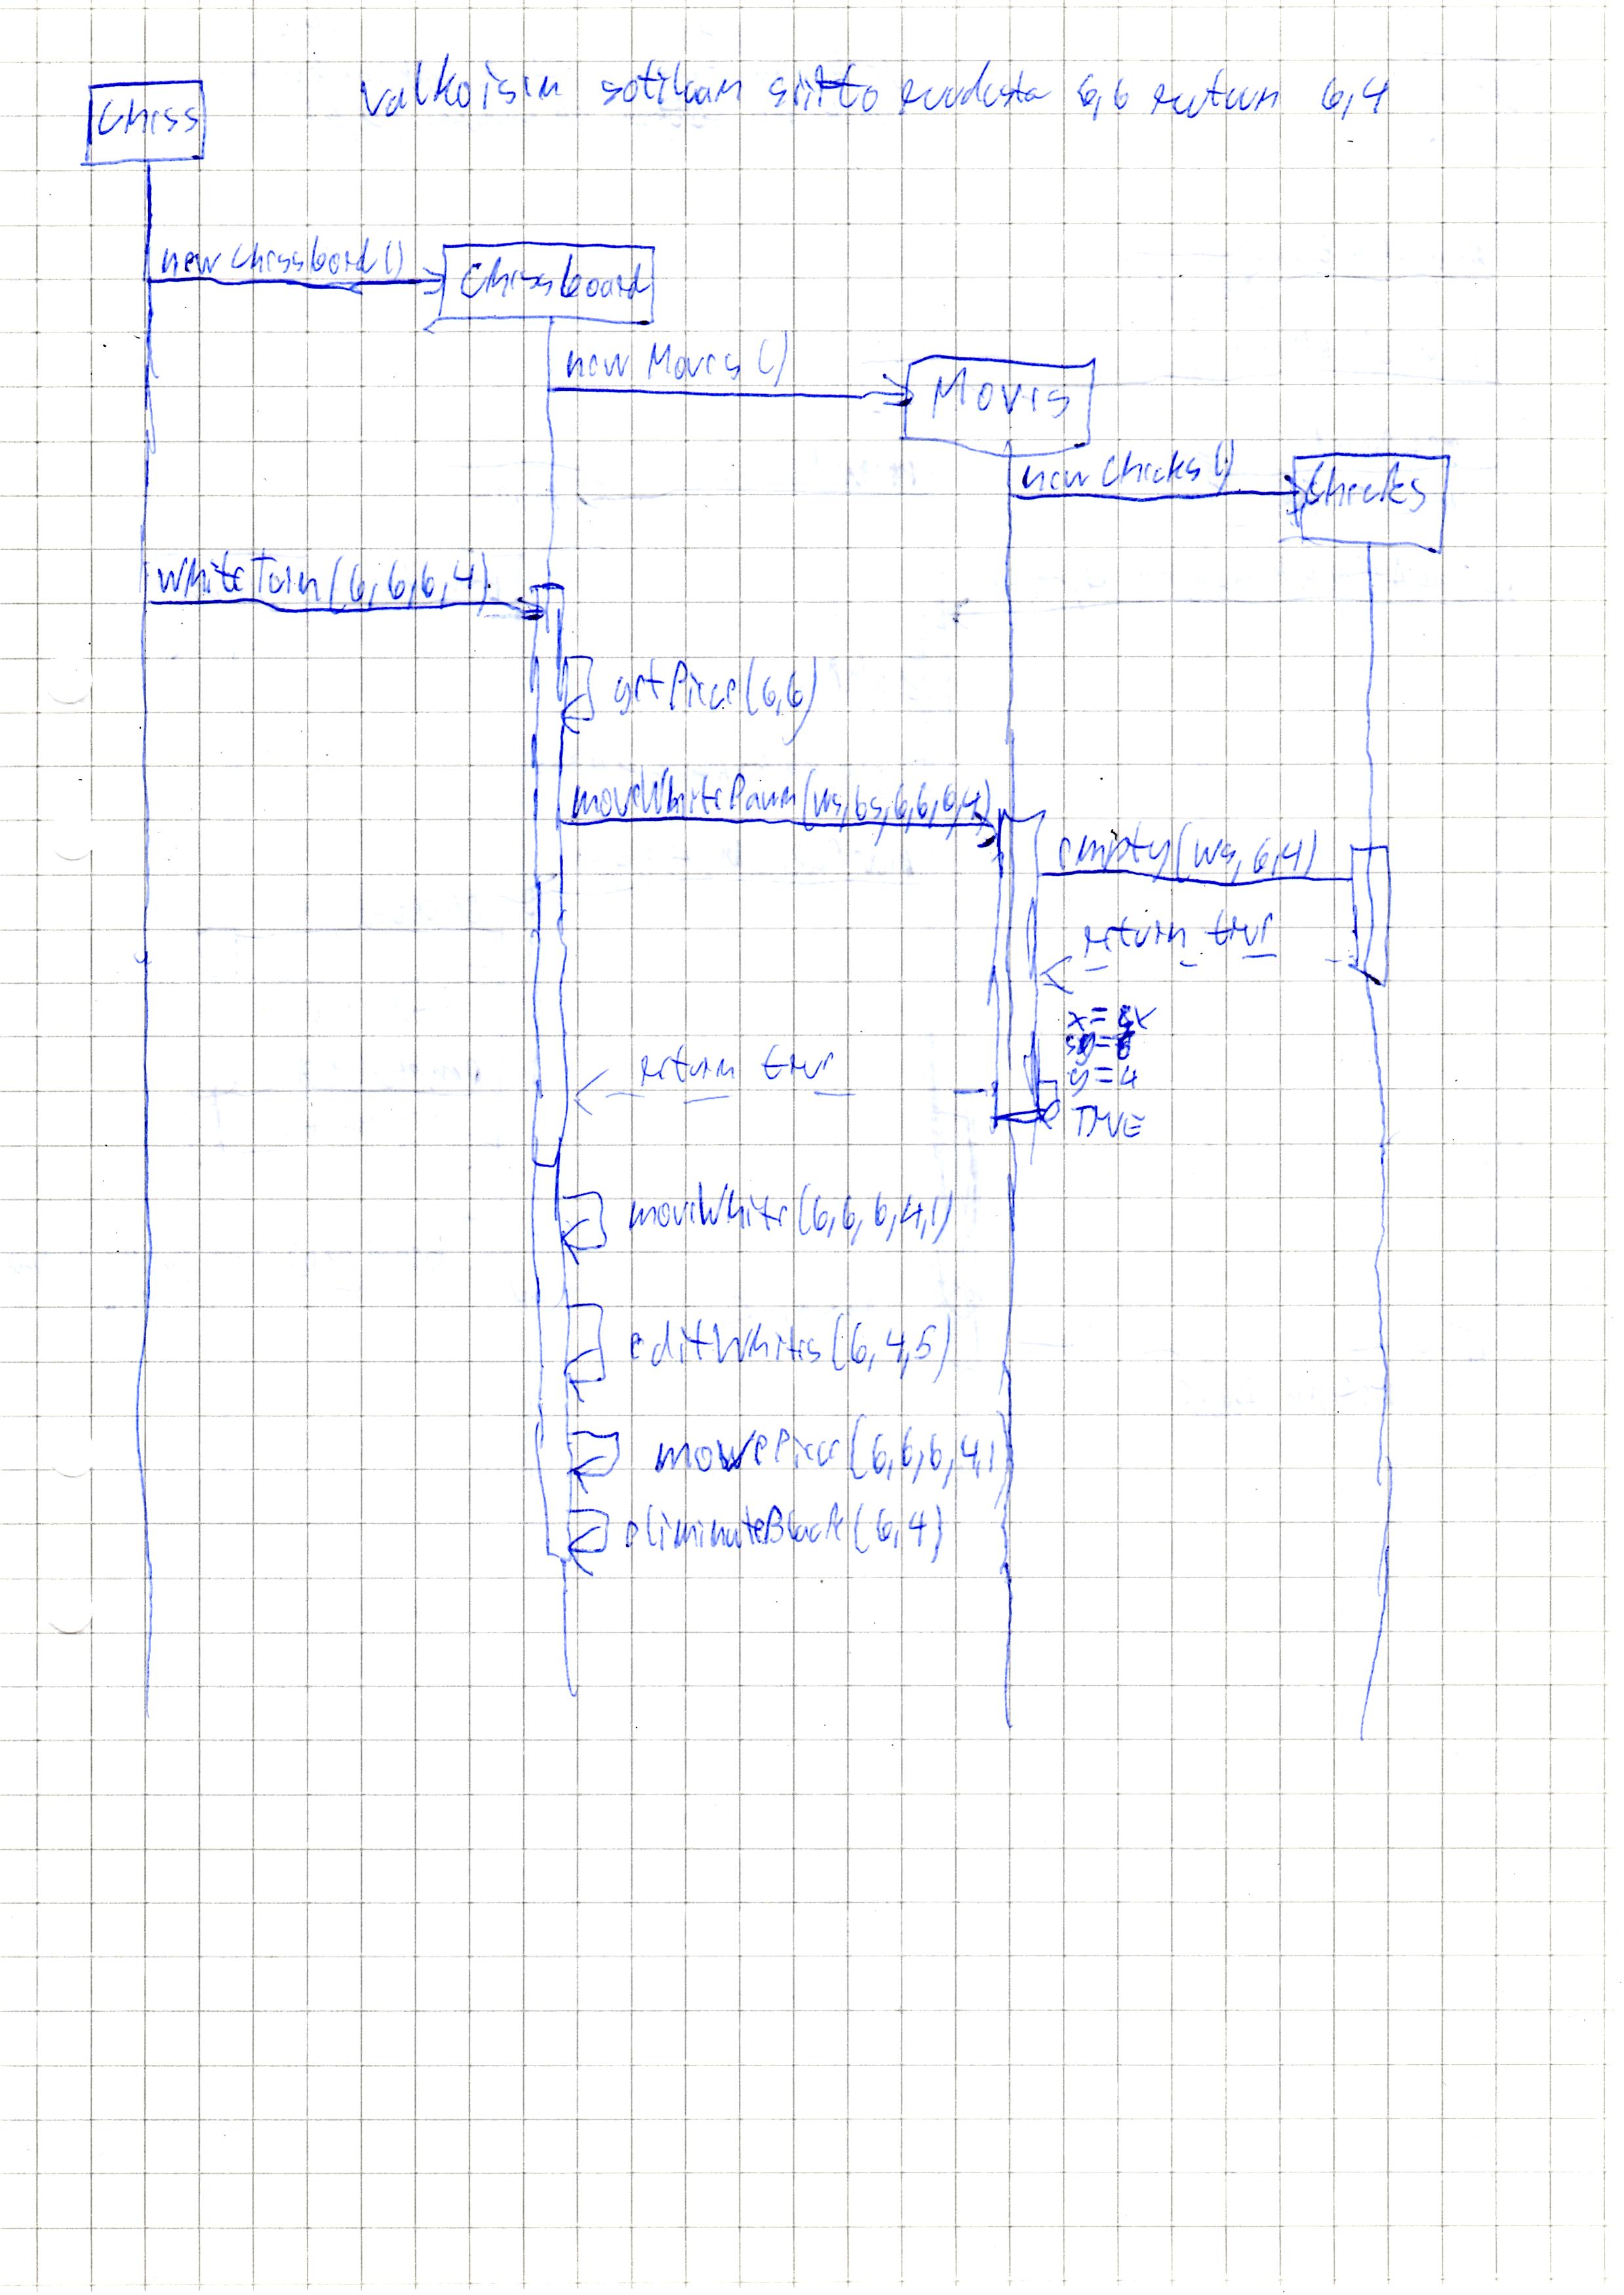 Chess
Valkoisen sotilaan siirto ruudusta 6,6 ruutuun 6,4
new Chessboard()
Chessboard
new Moves()
Moves
new Checks()
Checks
whiteTurn(6,6,6,4)
getPiece(6,6)
moveWhitePawn(ws,bs,6,6,6,4)
empty(ws,6,4)
return true
x=sx
y=4
return true
TRUE
moveWhite(6,6,6,4,1)
editWhites(6,4,5)
movePiece(6,6,6,4,1)
eliminateBlack(6,4)